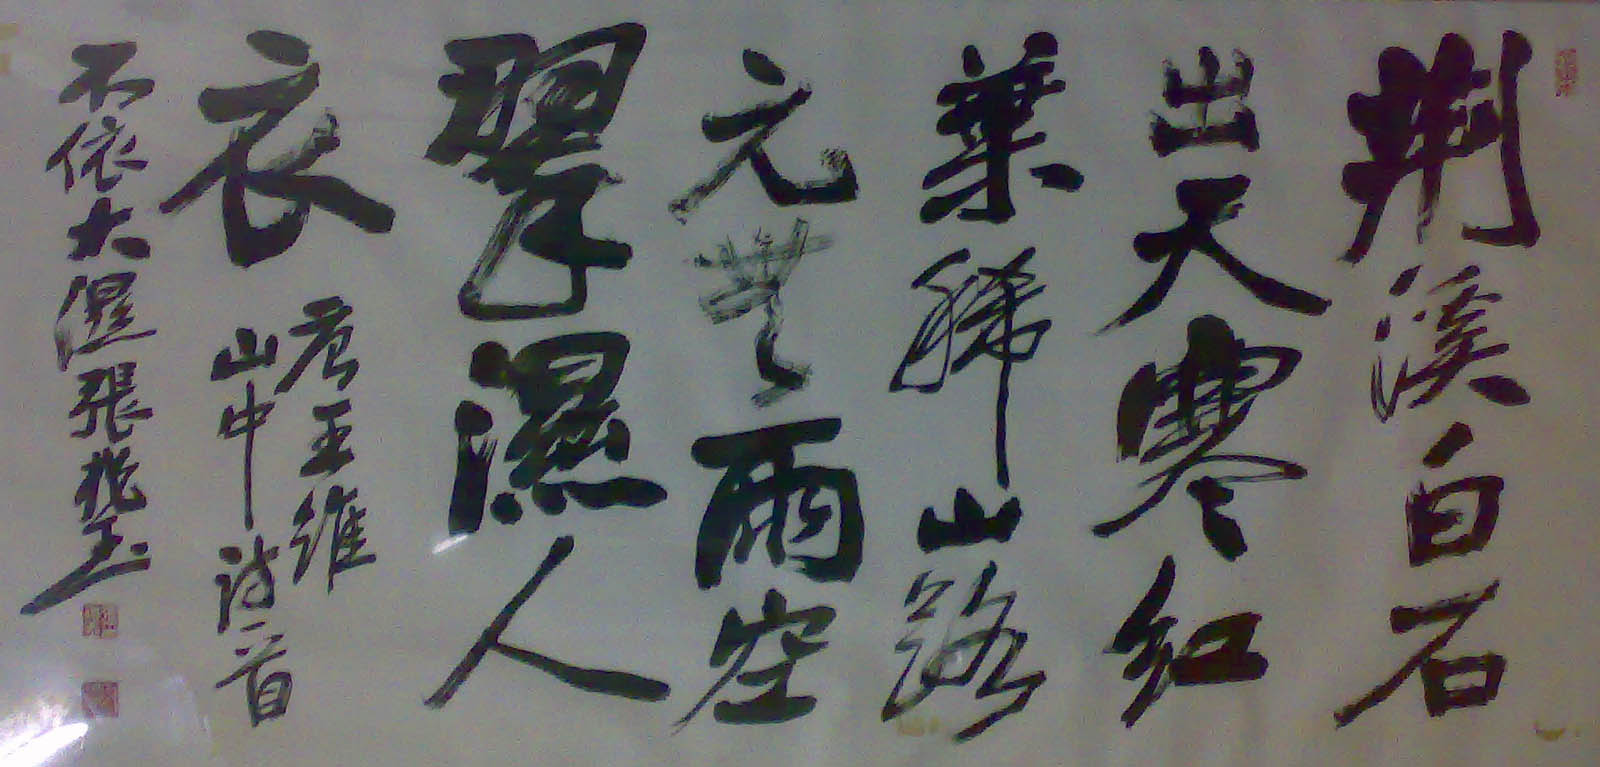 荆溪白石
出天寒红
葉稀山路
元無雨空
翠濕人
衣
唐王维
山中诗一首
不依大濕張